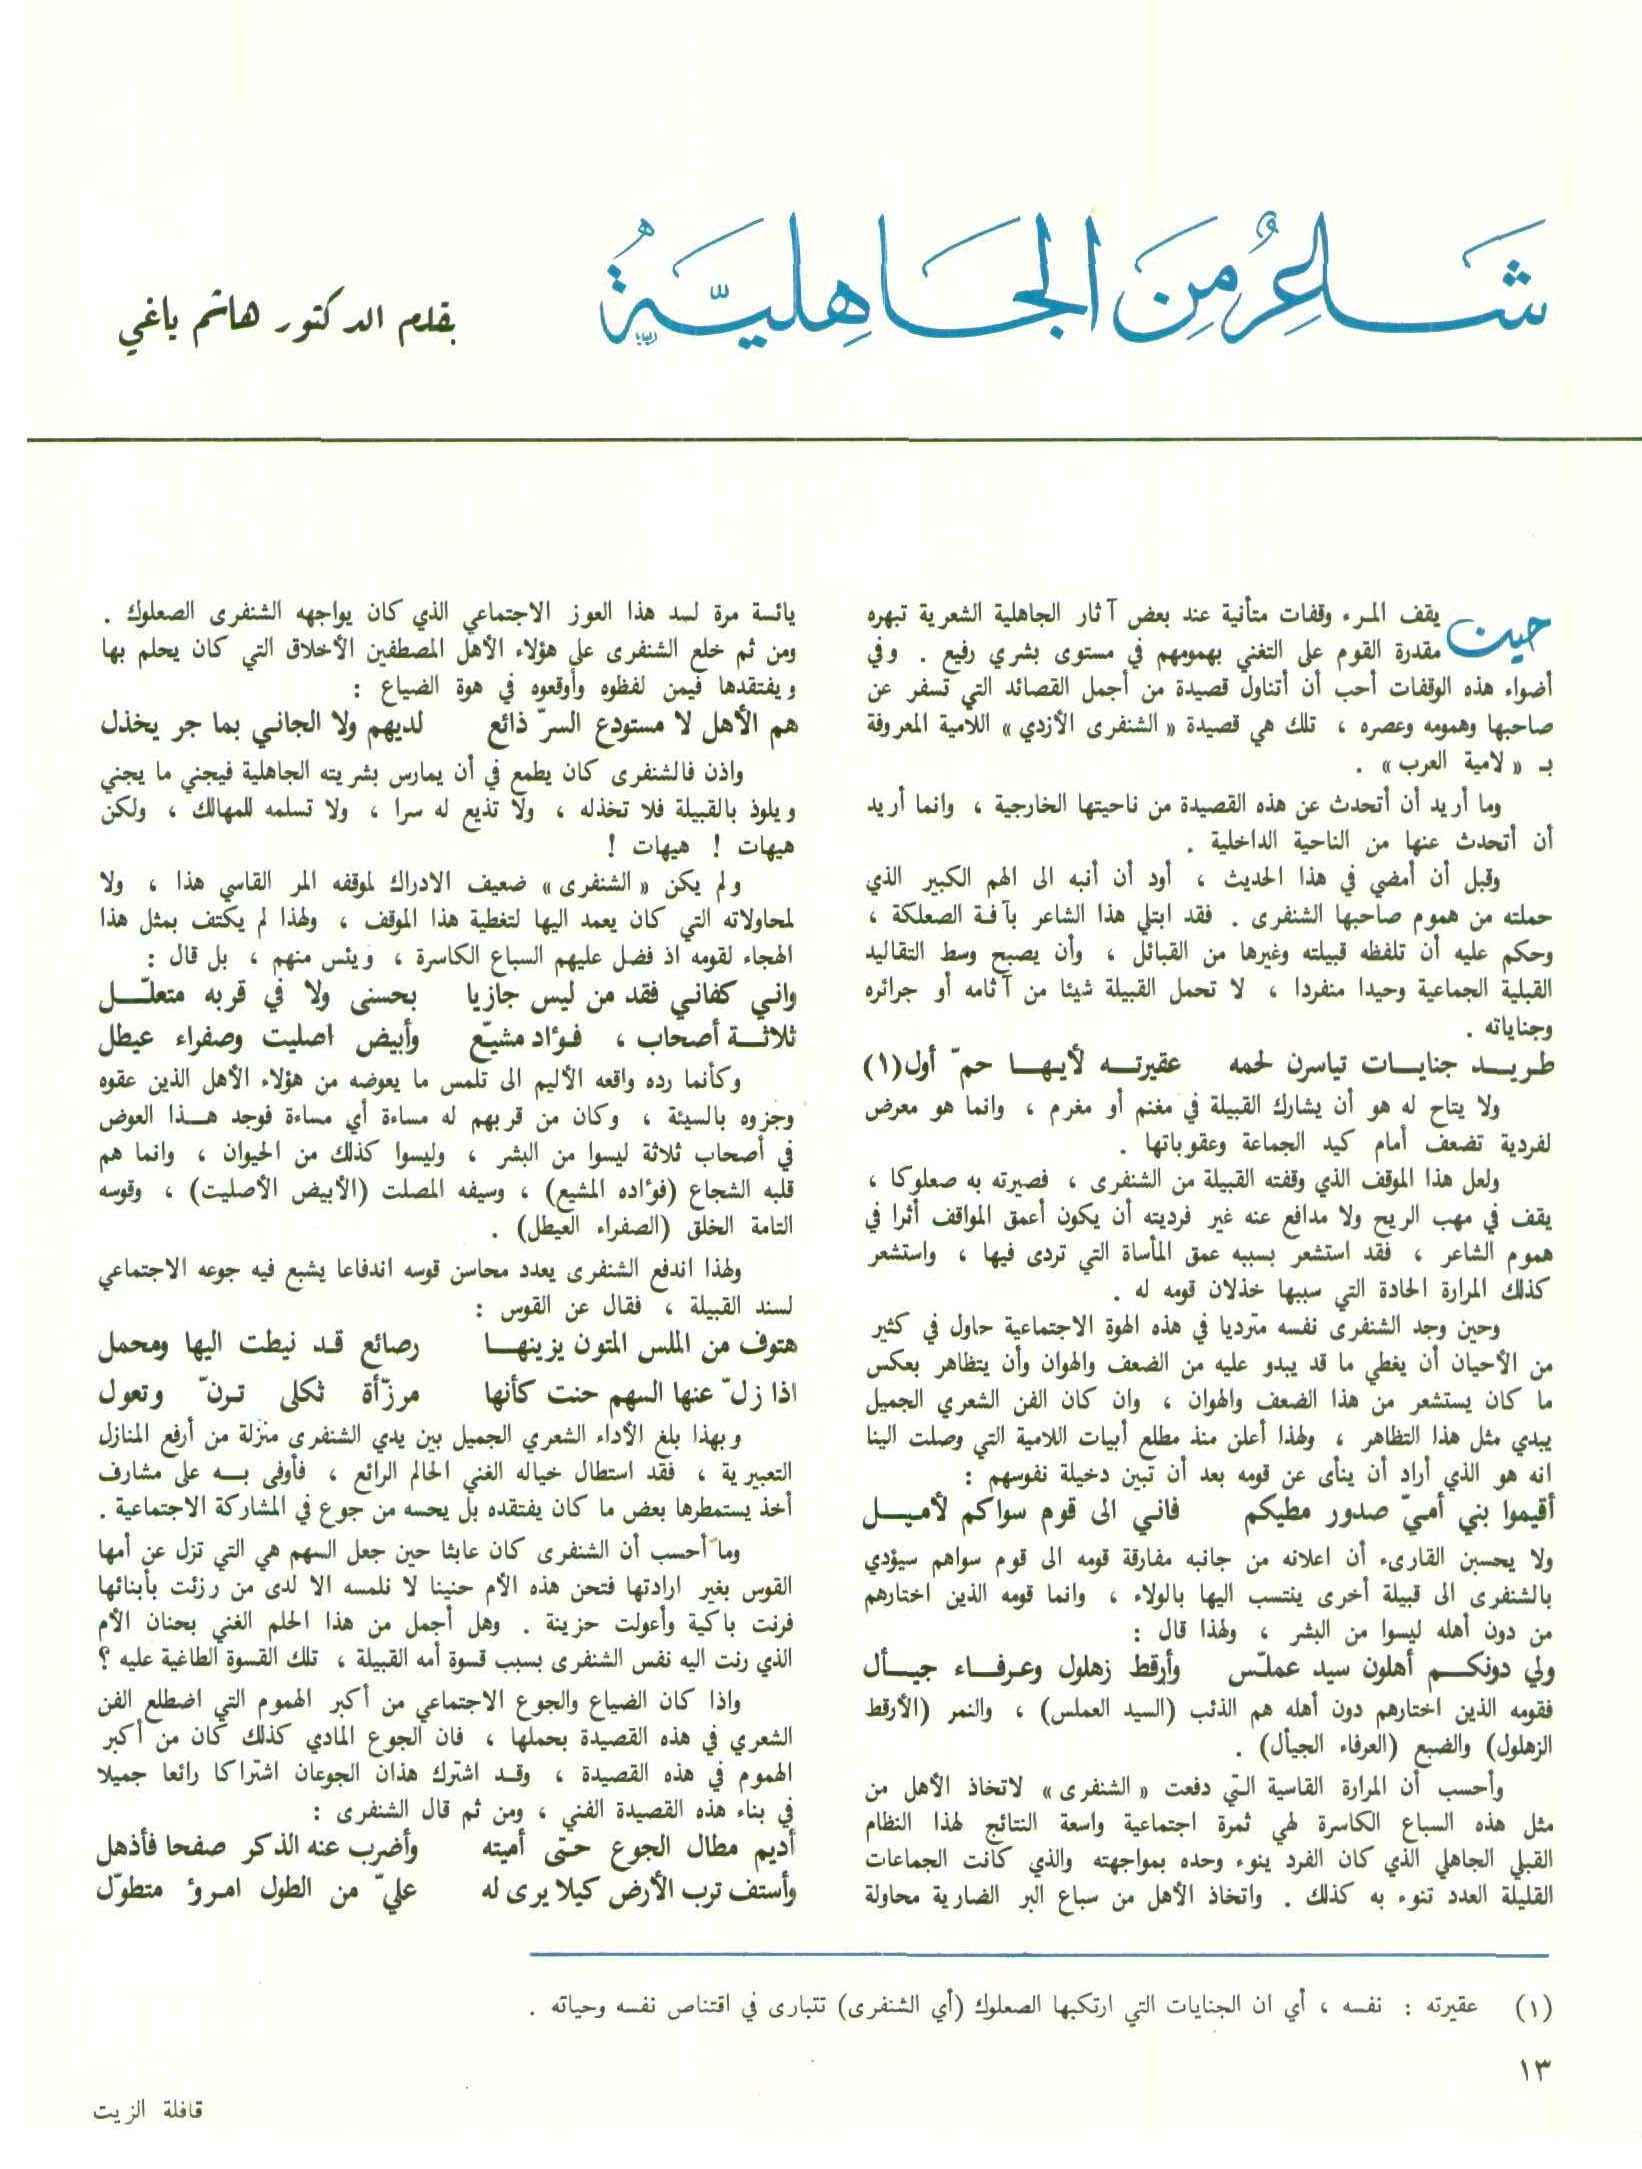 شاعر من الجاهلية
بقلم الدكتور هاشم ياغي
حين يقف المرء وقفات متأنية عند بعض آثار الجاهلية الشعرية تبهره
مقدرة القوم على التغني بهمومهم في مستوى بشري رفيع . وفي
أضواء هذه الوقفات أحب أن أتناول قصيدة من أجمل القصائد التي تسفر عن
صاحبها وهمومه وعصره ، تلك هي قصيدة « الشنفرى الأزدي » اللامية المعروفة
بـ « لامية العرب » .
وما أريد أن أتحدث عن هذه القصيدة من ناحيتها الخارجية ، وانما أريد
أن أتحدث عنها من الناحية الداخلية .
وقبل أن أمضي في هذا الحديث ، أود أن أنبه الى الهم الكبير الذي
حملته من هموم صاحبها الشنفرى . فقد ابتلي هذا الشاعر بآفة الصعلكة ،
وحكم عليه أن تلفظه قبيلته وغيرها من القبائل ، وأن يصبح وسط التقاليد
القبلية الجماعية وحيدا منفردا ، لا تحمل القبيلة شيئا من آثامه أو جرائره
وجناياته .
طريد جنايات تياسرن لحمه عقيرته لأيها حمّ أول (١)
ولا يتاح له هو أن يشارك القبيلة في مغنم أو مغرم ، وانما هو معرض
لفردية تضعف أمام كيد الجماعة وعقوباتها .
ولعل هذا الموقف الذي وقفته القبيلة من الشنفرى ، فصيرته به صعلوكا ،
يقف في مهب الريح ولا مدافع عنه غير فرديته أن يكون أعمق المواقف أثرا في
هموم الشاعر ، فقد استشعر بسببه عمق المأساة التي تردى فيها ، واستشعر
كذلك المرارة الحادة التي سببها خذلان قومه له .
وحين وجد الشنفرى نفسه مترديا في هذه الهوة الاجتماعية حاول في كثير
من الأحيان أن يغطي ما قد يبدو عليه من الضعف والهوان وأن يتظاهر بعكس
ما كان يستشعر من هذا الضعف والهوان ، وان كان الفن الشعري الجميل
يبدي مثل هذا التظاهر ، ولهذا أعلن منذ مطلع أبيات اللامية التي وصلت الينا
انه هو الذي أراد أن ينأى عن قومه بعد أن تبين دخيلة نفوسهم :
أقيموا بني أميّ صدور مطيكم فاني الى قوم سواكم لأميل
ولا يحسبن القارىء أن اعلانه من جانبه مفارقة قومه الى قوم سواهم سيؤدي
بالشنفرى الى قبيلة أخرى ينتسب اليها بالولاء ، وانما قومه الذين اختارهم
من دون أهله ليسوا من البشر ، ولهذا قال :
ولي دونكم أهلون سيد عملّس وأرقط زهلول وعرفاء جيأل
فقومه الذين اختارهم دون أهله هم الذئب (السيد العملس) ، والنمر (الأرقط
الزهلول) والضبع (العرفاء الجيأل) .
وأحسب أن المرارة القاسية التي دفعت « الشنفرى » لاتخاذ الأهل من
مثل هذه السباع الكاسرة لهي ثمرة اجتماعية واسعة النتائج لهذا النظام
القبلي الجاهلي الذي كان الفرد ينوء وحده بمواجهته والذي كانت الجماعات
القليلة العدد تنوء به كذلك . واتخاذ الأهل من سباع البر الضارية محاولة
يائسة مرة لسد هذا العوز الاجتماعي الذي كان يواجهه الشنفرى الصعلوك .
ومن ثم خلع الشنفرى على هؤلاء الأهل المصطفين الأخلاق التي كان يحلم بها
ويفتقدها فيمن لفظوه وأوقعوه في هوة الضياع :
هم الأهل لا مستودع السرّ ذائع لديهم ولا الجاني بما جر يخذل
واذن فالشنفرى كان يطمع في أن يمارس بشريته الجاهلية فيجني ما يجني
ويلوذ بالقبيلة فلا تخذله ، ولا تذيع له سرا ، ولا تسلمه للمهالك ، ولكن
هيهات ! هيهات !
ولم يكن « الشنفرى » ضعيف الادراك لموقفه المر القاسي هذا ، ولا
لمحاولاته التي كان يعمد اليها لتغطية هذا الموقف ، ولهذا لم يكتف بمثل هذا
الهجاء لقومه اذ فضل عليهم السباع الكاسرة ، ويئس منهم ، بل قال :
واني كفاني فقد من ليس جازيا بحسنى ولا في قربه متعلّل
ثلاثة أصحاب ، فؤاد مشيّع وأبيض اصليت وصفراء عيطل
وكأنما رده واقعه الأليم الى تلمس ما يعوضه من هؤلاء الأهل الذين عقوه
وجزوه بالسيئة ، وكان من قربهم له مساءة أي مساءة فوجد هذا العوض
في أصحاب ثلاثة ليسوا من البشر ، وليسوا كذلك من الحيوان ، وانما هم
قلبه الشجاع (فؤاده المشيع) ، وسيفه المصلت (الأبيض الأصليت) ، وقوسه
التامة الخلق (الصفراء العيطل) .
ولهذا اندفع الشنفرى يعدد محاسن قوسه اندفاعا يشبع فيه جوعه الاجتماعي
لسند القبيلة ، فقال عن القوس :
هتوف من الملس المتون يزينها رصائع قد نيطت اليها ومحمل
اذا زلّ عنها السهم حنت كأنها مرزّأة ثكلى ترنّ وتعول
وبهذا بلغ الأداء الشعري الجميل بين يدي الشنفرى منزلة من أرفع المنازل
التعبيرية ، فقد استطال خياله الغني الحالم الرائع ، فأوفى به على مشارف
أخذ يستمطرها بعض ما كان يفتقده بل يحسه من جوع في المشاركة الاجتماعية .
وما أحسب أن الشنفرى كان عابثا حين جعل السهم هي التي تزل عن أمها
القوس بغير ارادتها فتحن هذه الأم حنينا لا نلمسه الا لدى من رزئت بأبنائها
فرنت باكية وأعولت حزينة . وهل أجمل من هذا الحلم الغني بحنان الأم
الذي رنت اليه نفس الشنفرى بسبب قسوة أمه القبيلة ، تلك القسوة الطاغية عليه ؟
واذا كان الضياع والجوع الاجتماعي من أكبر الهموم التي اضطلع الفن
الشعري في هذه القصيدة بحملها ، فان الجوع المادي كذلك كان من أكبر
الهموم في هذه القصيدة ، وقد اشترك هذان الجوعان اشتراكا رائعا جميلا
في بناء هذه القصيدة الفني ، ومن ثم قال الشنفرى :
أديم مطال الجوع حتى أميته وأضرب عنه الذكر صفحا فأذهل
وأستف ترب الأرض كيلا يرى له عليّ من الطول امرؤ متطوّل
(١) عقيرته : نفسه ، أي ان الجنايات التي ارتكبها الصعلوك (أي الشنفرى) تتبارى في اقتناص نفسه وحياته .
١٣
قافلة الزيت